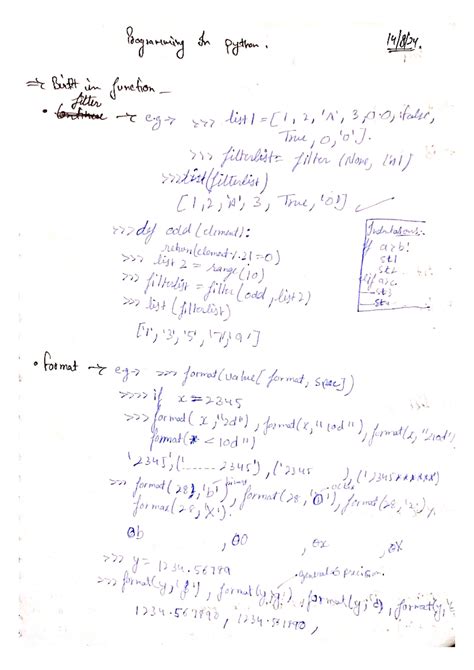 Programming In python.
14/8/24.
=> Built in function -
filter
• → eg → >>> list1 = [1, 2, 'A', 3, 0.0, false,
True, 0, '0'].
>>> filterlist = filter (None, list1)
>>> list(filterlist)
[1, 2, 'A', 3, True, '0']
>>> def odd (element):
return (element % 2! = 0)
>>> list 2 = range (10)
>>> filterlist = filter (odd, list2)
>>> list (filterlist)
['1', '3', '5', '7', '9']
Indentations:-
if a>b:
st1
st2
elif a>c
st3
st4
• format → eg → >>> format (value [format, spec])
>>>> if x = 2345
>>> format (x, "2d"), format (x, "10d"), format (x,
format (* < 10d")
'2345', ('......2345'), ('2345 '), ('2345******)
binary
octal
>>> format (28, 'b'), format (28, 'O'), format (28,
format (28, 'X').
0b , 0O , 0x , 0X
>>> y = 1234.56789
general & precision
>>> format (y, 'g'), format (y, format (y, format (y,
1234.567890, 1234.